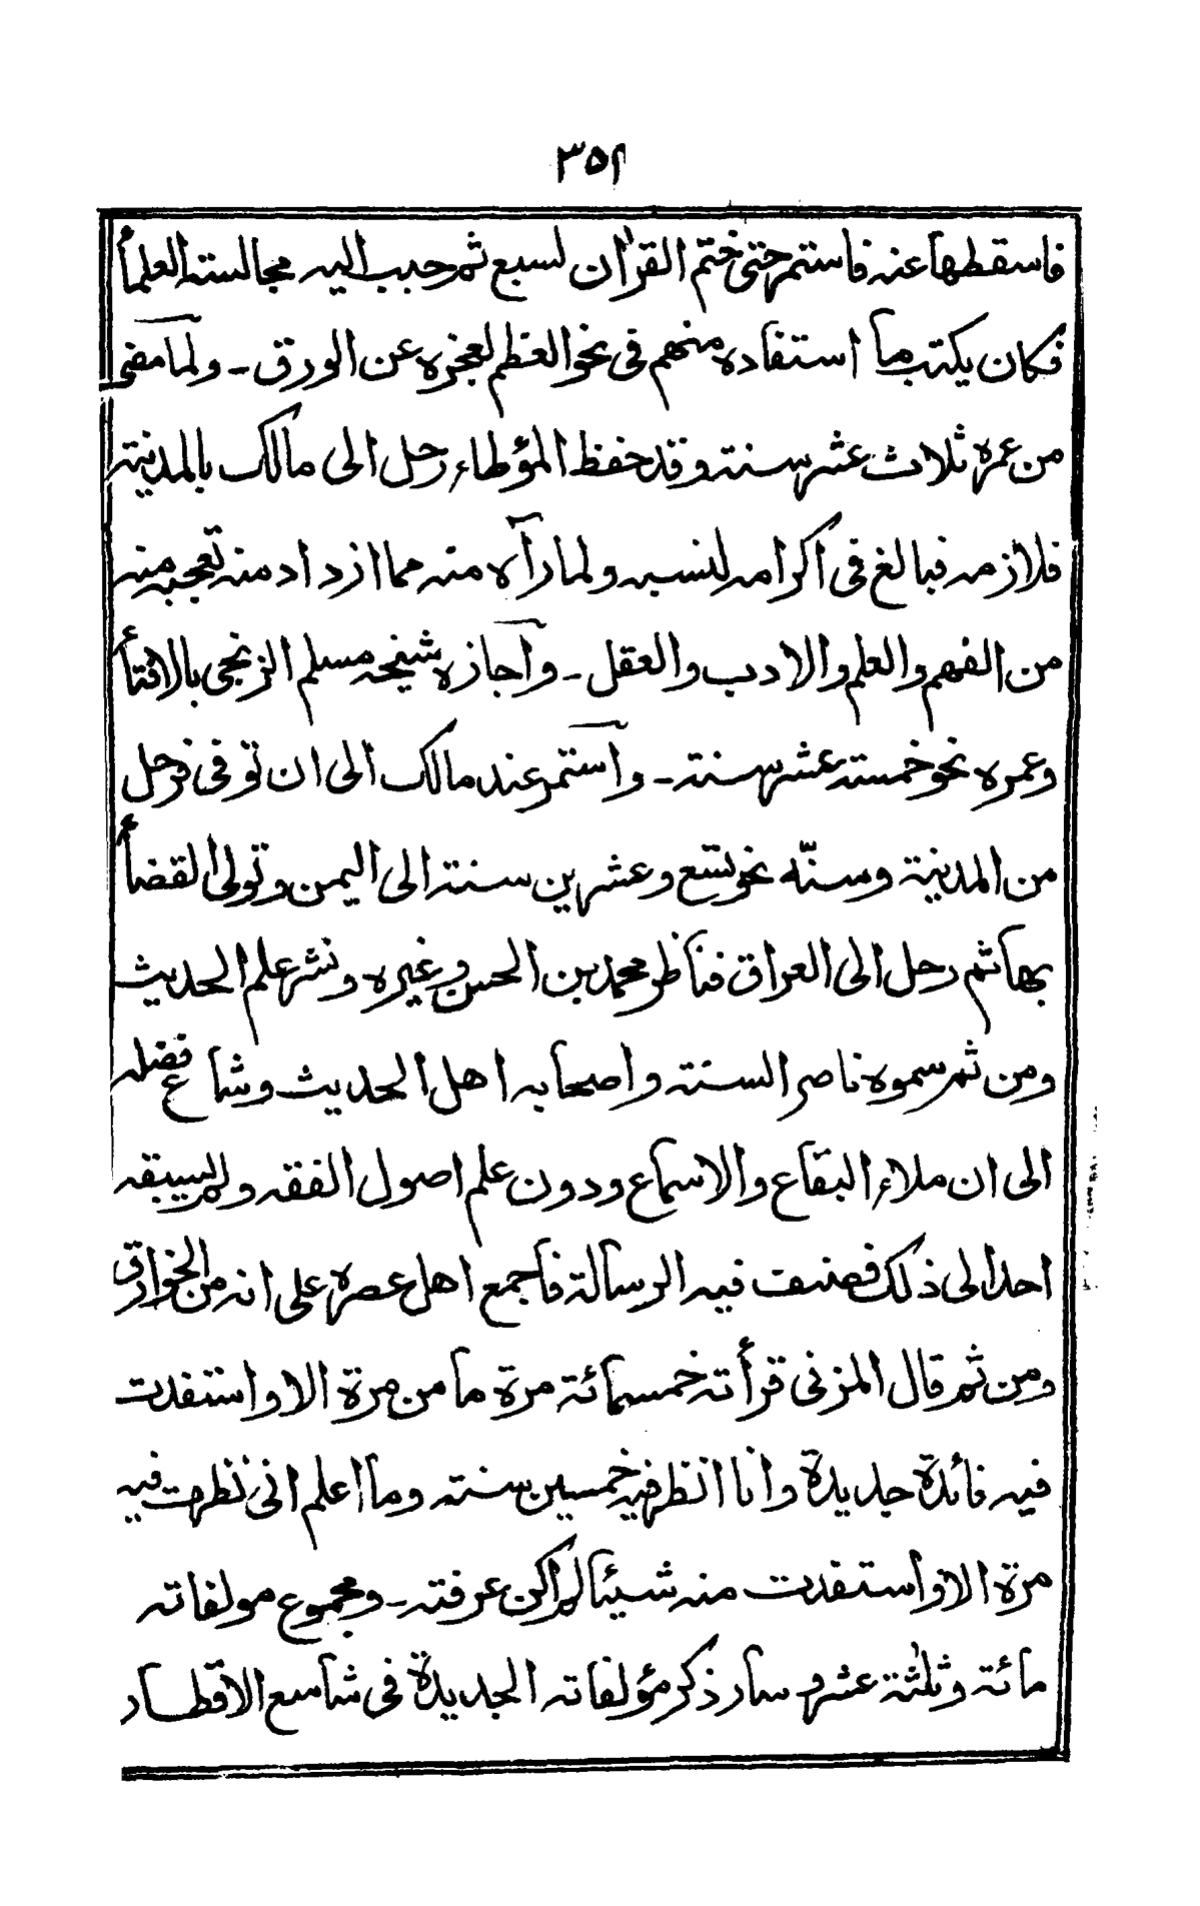 ۳۵۲
فاسقطها عنه فاستمر حتى ختم القرآن لسبع ثم حبب اليه مجالسة العلمأ
فكان يكتب ما استفاده منهم فى نحو العظم لعجزه عن الورق ـ ولما مضى
من عمره ثلاث عشر سنة وقد حفظ المؤطاء رحل الى مالك بالمدينة
فلازمه فبالغ فى اكرامه لنسبه ولما رآه منه مما ازداد منه تعجبه منه
من الفهم والعلم والادب والعقل ـ وأجازه شيخه مسلم الزنجى بالافتأ
وعمره نحو خمسة عشر سنة ـ وأستمر عند مالك الى ان توفى فرحل
من المدينة وسنّه نحو تسع وعشرين سنة الى اليمن وتولى القضأ
بها ثم رحل الى العراق فناظر محمد بن الحسن وغيره ونشر علم الحديث
ومن ثم سموه ناصر السنة واصحابه اهل الحديث وشاع فضله
الى ان ملاء البقاع والاسماع ودون علم اصول الفقه ولم يسبقه
احد الى ذلك فصنف فيه الرسالة فأجمع اهل عصره على انه من الخوارق
ومن ثم قال المزنى قرأته خمسمائة مرة ما من مرة الا واستفدت
فيه فائدة جديدة وانا انظر فيه خمسين سنة وما اعلم انى نظرت فيه
مرة الا واستفدت منه شيئا لم اكن عرفته ـ ومجموع مولفاته
مائة وثلثة عشر وسار ذكر مؤلفاته الجديدة فى شاسع الاقطار